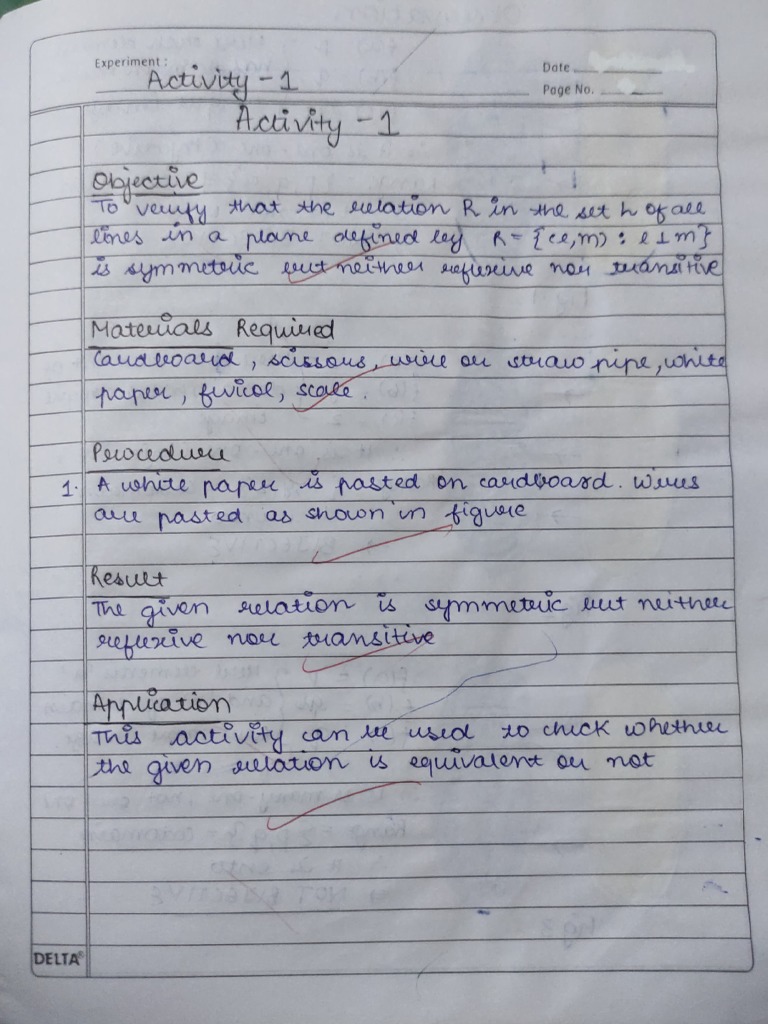 Experiment :
Activity - 1
Date
Page No.
Activity - 1
Objective
To verify that the relation R in the set L of all
lines in a plane defined by R = {(l,m) : l ⊥ m}
is symmetric but neither reflexive nor transitive
Materials Required
Cardboard, scissors, wire or straw pipe, white
paper, fevicol, scale.
Procedure
1. A white paper is pasted on cardboard. Wires
are pasted as shown in figure
Result
The given relation is symmetric but neither
reflexive nor transitive
Application
This activity can be used to check whether
the given relation is equivalent or not
DELTA®